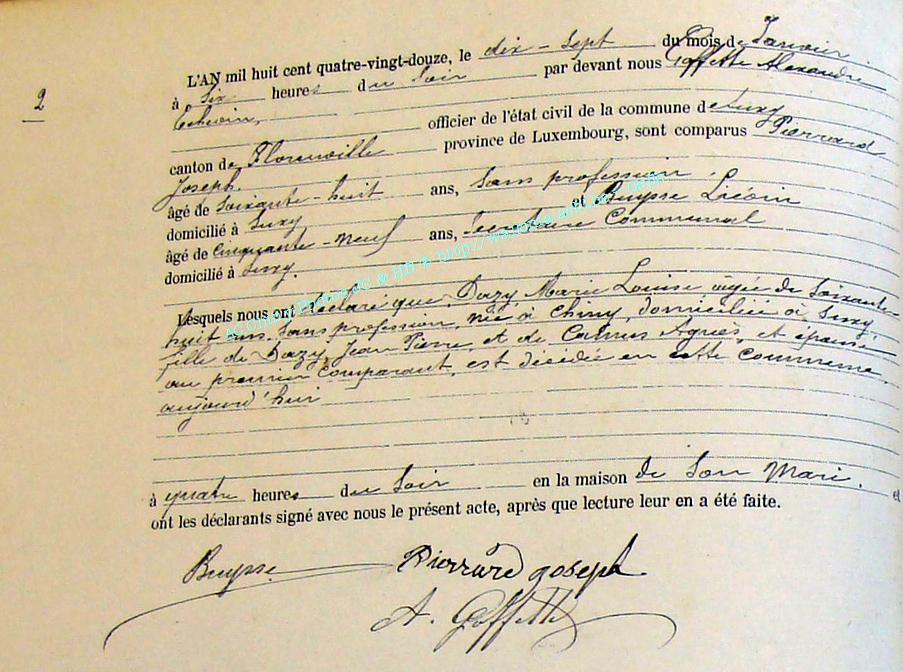 2
L'AN mil huit cent quatre-vingt-douze, le dix-sept du mois de Janvier
à Six heures du Soir par devant nous Goffette Alexandre
Echevin,
officier de l'état civil de la commune de Suxy
canton de Florenville province de Luxembourg, sont comparus Pierrard
Joseph.
âgé de Soixante-huit ans, Sans profession
domicilié à Suxy et Buysse Liévin
âgé de Cinquante-neuf ans, Secrétaire Communal
domicilié à Suxy.
Lesquels nous ont déclaré que Dazy Marie Louise agée de Soixante-
huit ans, Sans profession, née à Chiny, domiciliée à Suxy,
fille de Dazy, Jean Pierre, et de Agnès, et épouse
au premier Comparant, est décédée en cette Commune,
aujourd'hui
à quatre heures du Soir en la maison de Son Mari. et
ont les déclarants signé avec nous le présent acte, après que lecture leur en a été faite.
Buysse Pierrard Joseph
A. Goffette